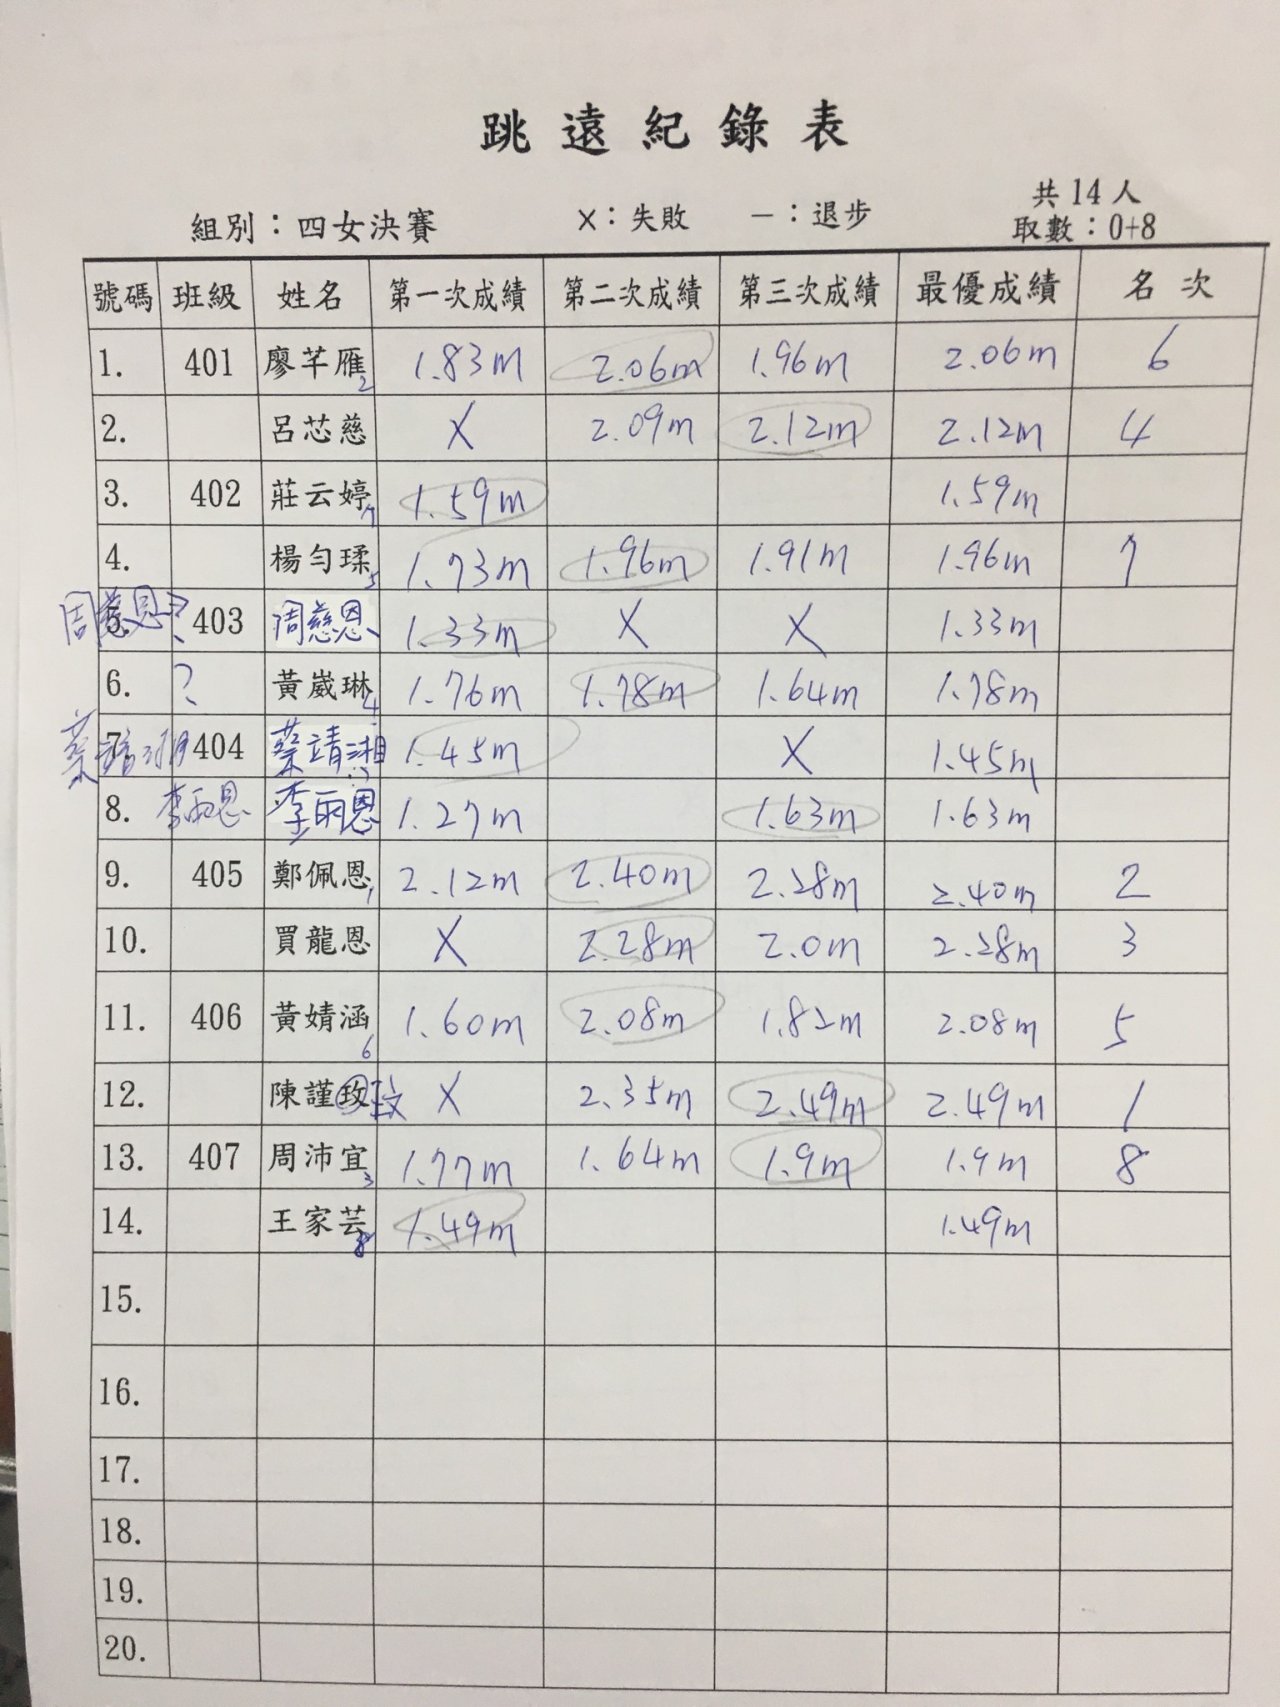 跳遠紀錄表
共14人
組別：四女決賽 ×：失敗 －：退步 取數：0+8
號碼 班級 姓名 第一次成績 第二次成績 第三次成績 最優成績 名次
1. 401 廖芊雁2 1.83m 2.06m 1.96m 2.06m 6
2. 呂芯慈 X 2.09m 2.12m 2.12m 4
3. 402 莊云婷7 1.59m 1.59m
4. 楊勻瑈5 1.73m 1.96m 1.91m 1.96m 7
周慈恩? 5. 403 周慈恩 1.33m X X 1.33m
6. ? 黃崴琳4 1.76m 1.78m 1.64m 1.78m
蔡 7. 404 蔡靖湘 1.45m X 1.45m
8. 李雨恩 李雨恩 1.27m 1.63m 1.63m
9. 405 鄭佩恩1 2.12m 2.40m 2.28m 2.40m 2
10. 買龍恩 X 2.28m 2.0m 2.28m 3
11. 406 黃婧涵6 1.60m 2.08m 1.82m 2.08m 5
12. 陳謹玫 玟 X 2.35m 2.49m 2.49m 1
13. 407 周沛宜3 1.77m 1.64m 1.9m 1.9m 8
14. 王家芸8 1.49m 1.49m
15.
16.
17.
18.
19.
20.